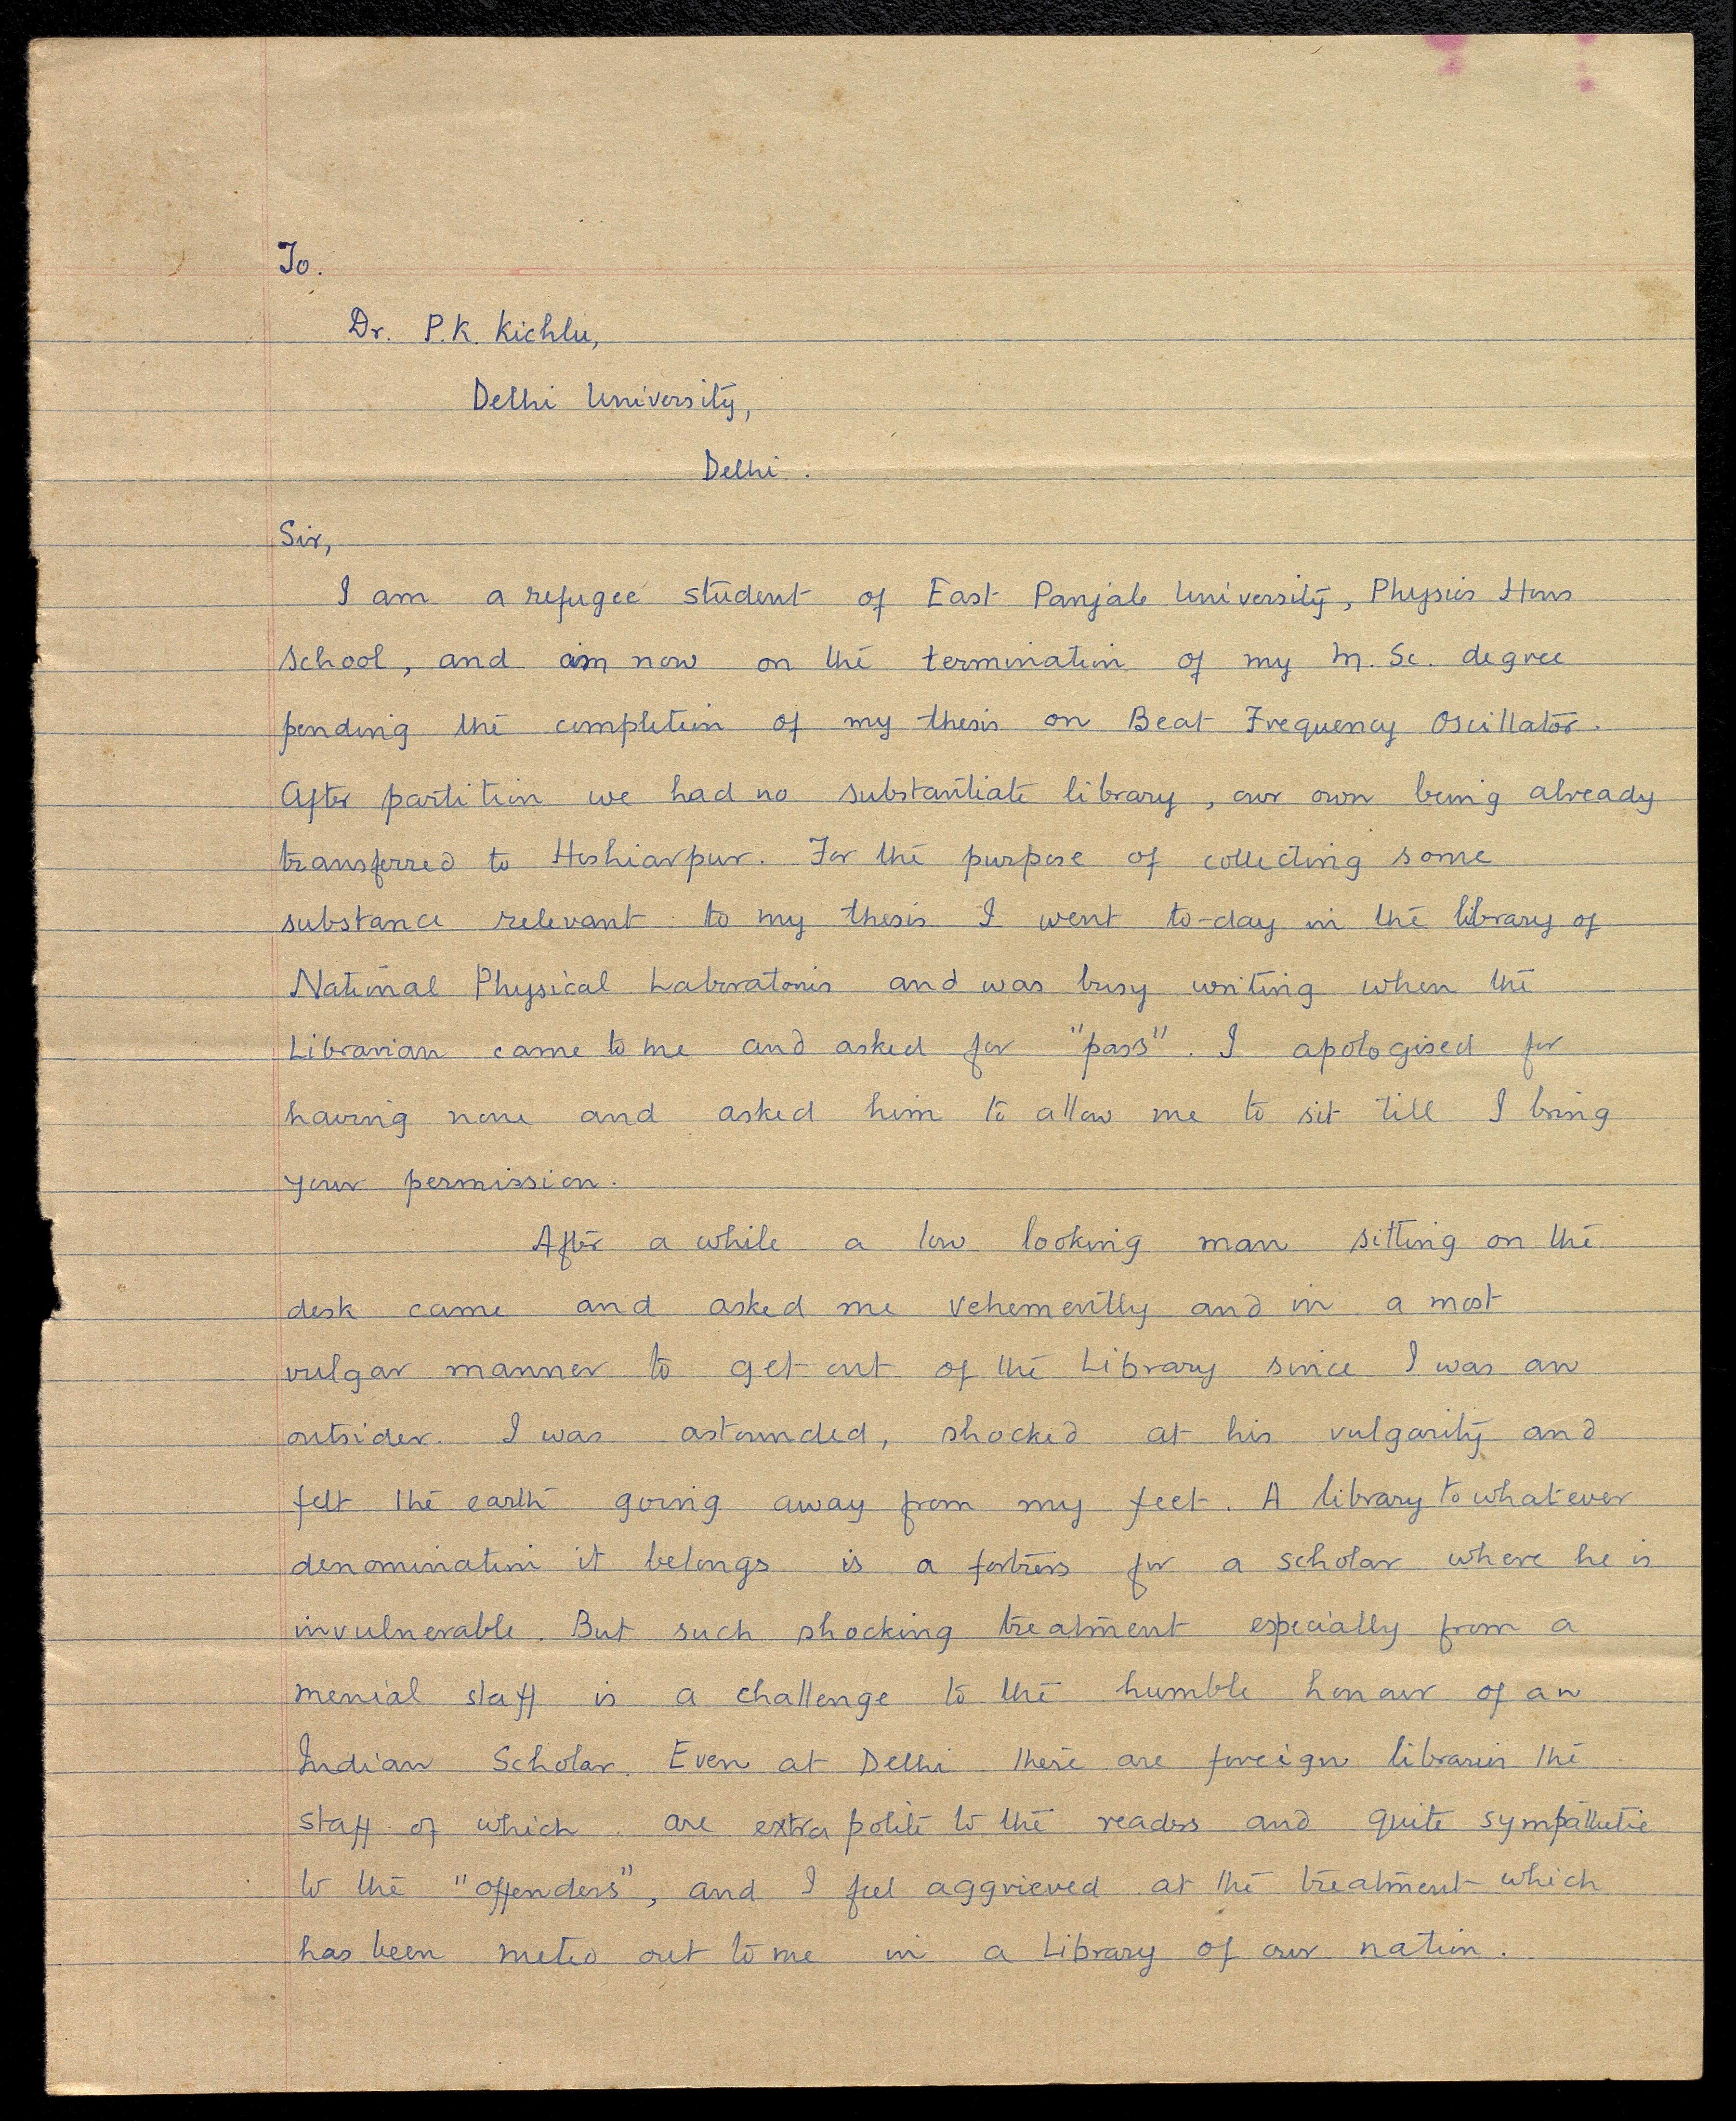 To.
Dr. P.K. Kichlu,
Delhi University,
Delhi.
Sir,
I am a refugee student of East Panjab University, Physics Hons
School, and am now on the termination of my M.Sc. degree
pending the completion of my thesis on Beat Frequency Oscillator.
After partition we had no substantiate library, our own being already
transferred to Hoshiarpur. For the purpose of collecting some
substance relevant to my thesis I went to-day in the library of
National Physical Laboratories and was busy writing when the
Librarian came to me and asked for "pass". I apologised for
having none and asked him to allow me to sit till I bring
your permission.
After a while a low looking man sitting on the
desk came and asked me vehemently and in a most
vulgar manner to get out of the Library since I was an
outsider. I was astounded, shocked at his vulgarity and
felt the earth going away from my feet. A library to whatever
denomination it belongs is a fortress for a scholar where he is
invulnerable. But such shocking treatment especially from a
menial staff is a challenge to the humble honour of an
Indian Scholar. Even at Delhi there are foreign libraries the
staff of which are extra polite to the readers and quite sympathetic
to the "offenders", and I feel aggrieved at the treatment which
has been meted out to me in a Library of our nation.